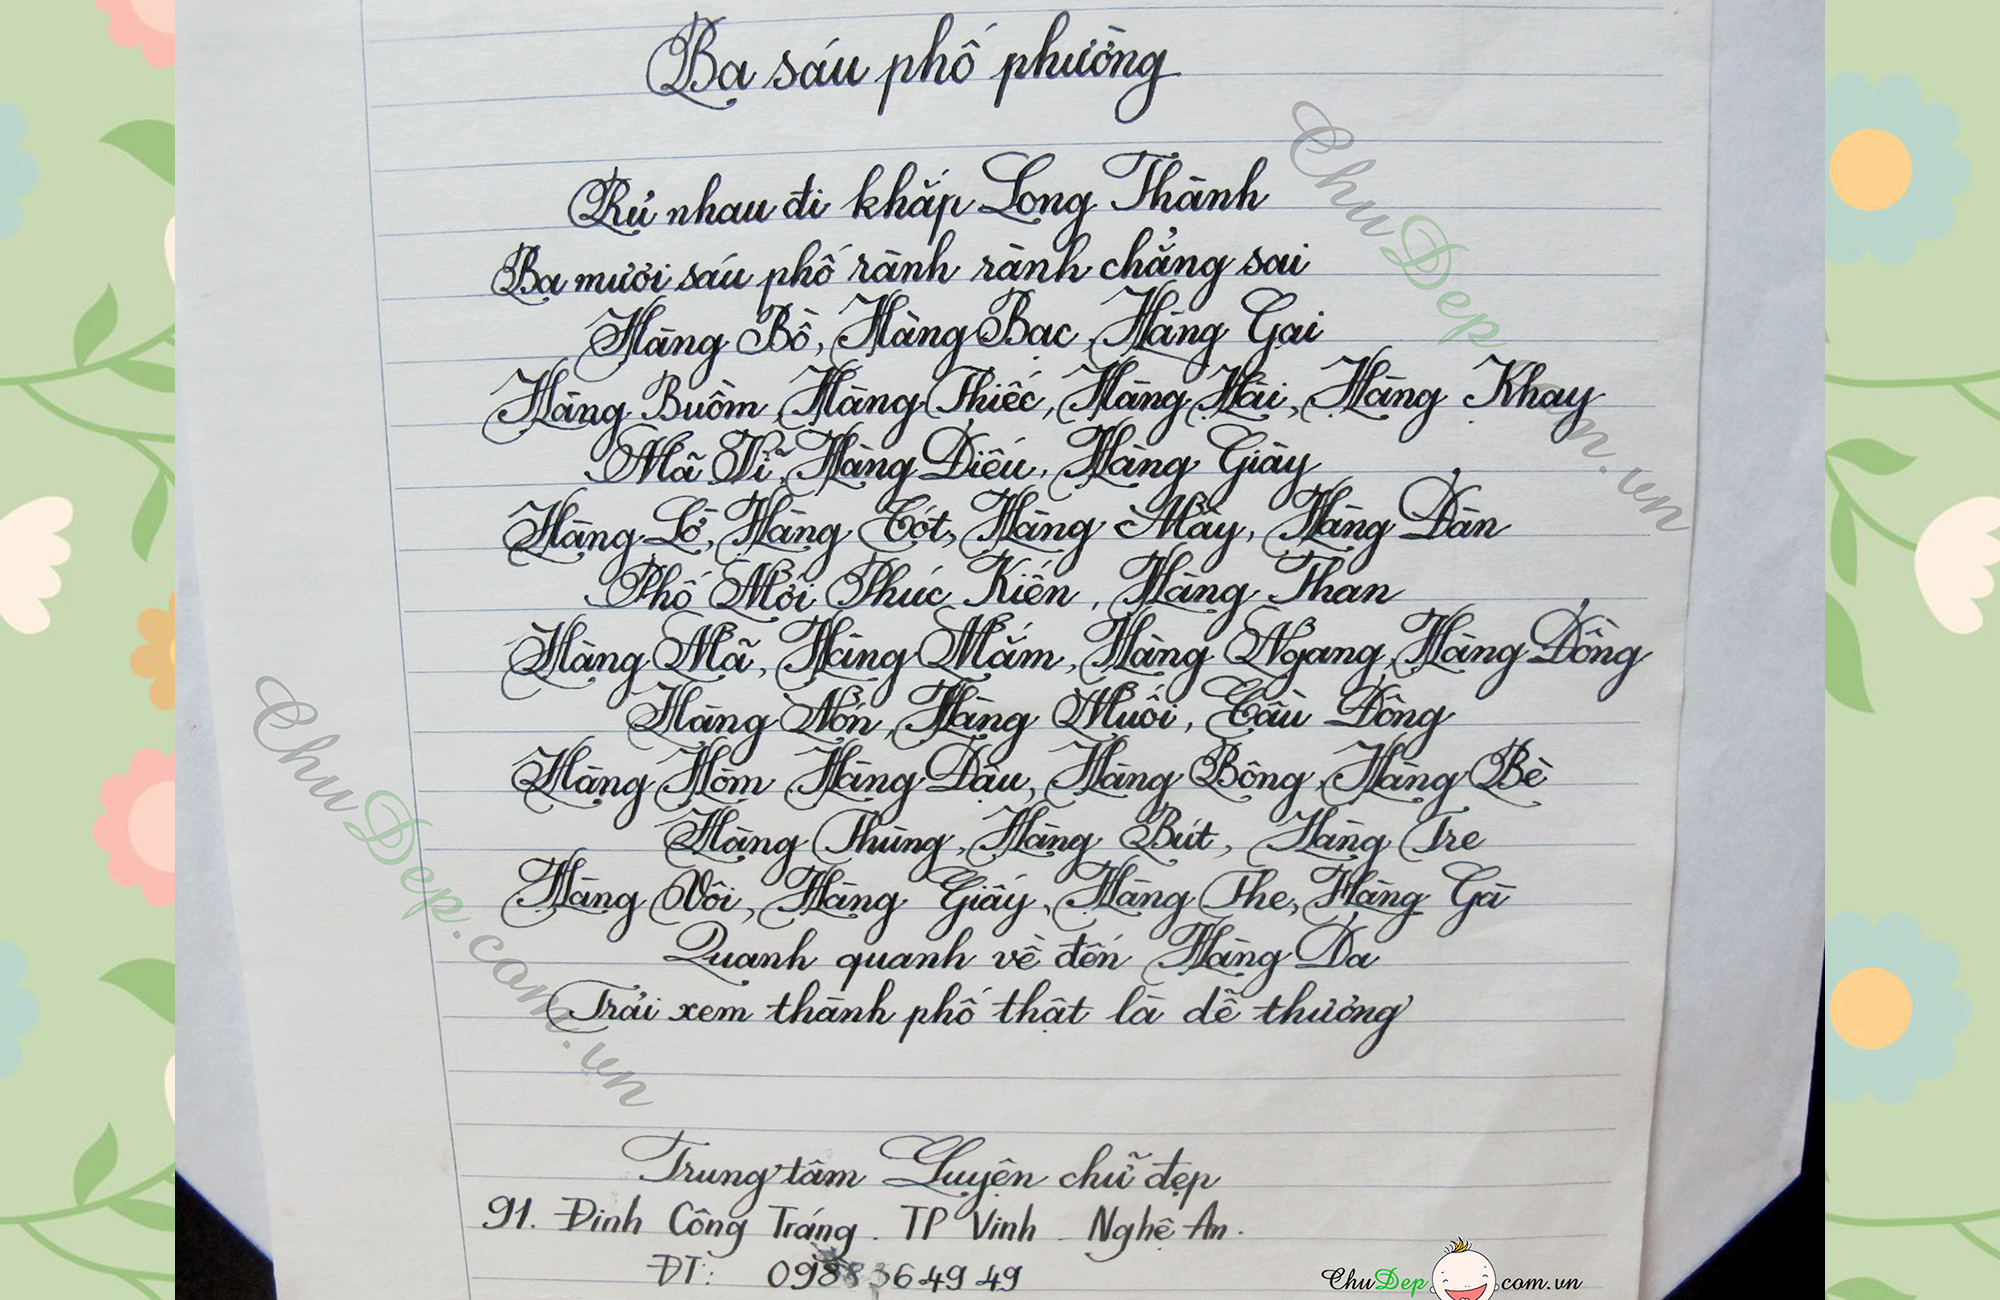 Ba sáu phố phường
Rủ nhau đi khắp Long Thành
Ba mươi sáu phố rành rành chẳng sai
Hàng Bồ, Hàng Bạc, Hàng Gai
Hàng Buồm, Hàng Thiếc, Hàng Hài, Hàng Khay
Mã Vĩ, Hàng Điếu, Hàng Giày
Hàng Lờ, Hàng Cót, Hàng Mây, Hàng Đàn
Phố Mới Phúc Kiến, Hàng Than
Hàng Mã, Hàng Mắm, Hàng Ngang, Hàng Đồng
Hàng Nón, Hàng Muối, Cầu Đông
Hàng Hòm Hàng Đậu, Hàng Bông, Hàng Bè
Hàng Thùng, Hàng Bút, Hàng Tre
Hàng Vôi, Hàng Giấy, Hàng The, Hàng Gà
Quanh quanh về đến Hàng Da
Trải xem thành phố thật là dễ thương
Trung tâm Luyện chữ đẹp
91. Đinh Công Tráng. TP Vinh - Nghệ An.
ĐT:
ChuDep.com.vn
ChuDep.com.vn
ChuDep com.vn